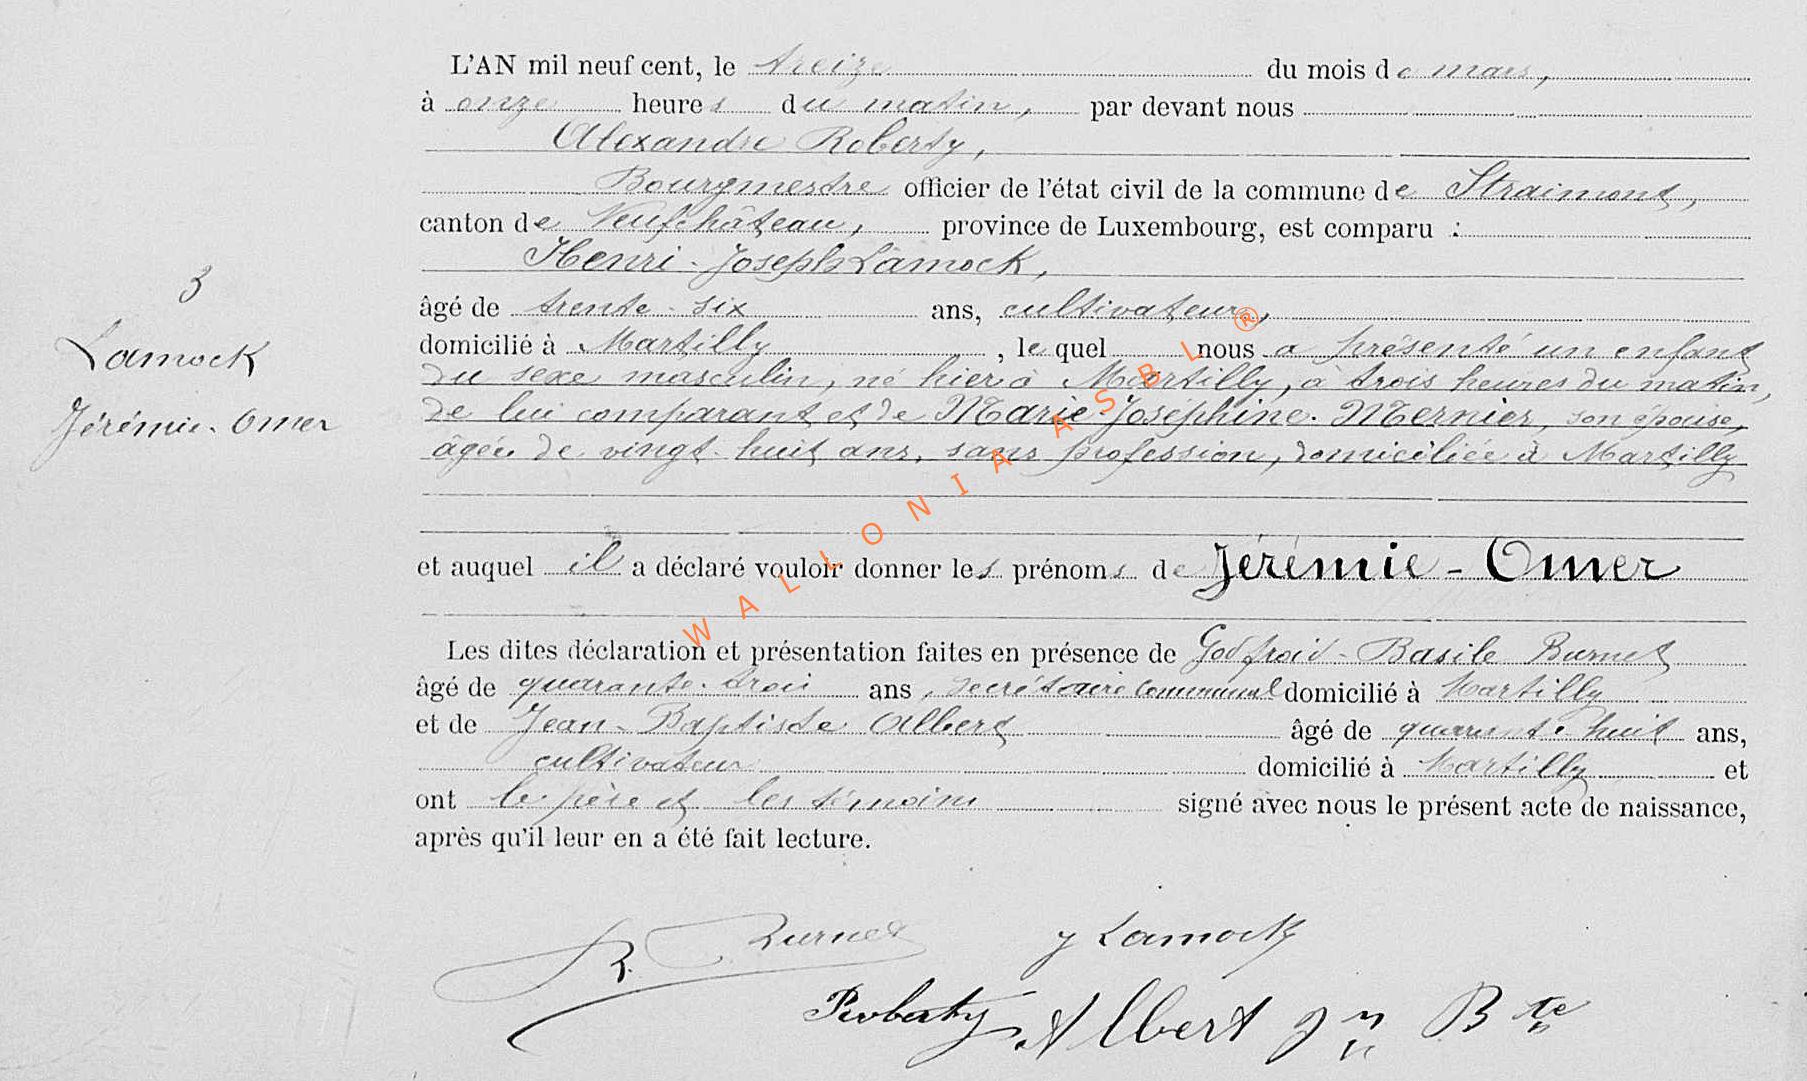 3
Lamock
Jérémie-Omer
L'AN mil neuf cent, le treize du mois de mars,
à onze heures du matin, par devant nous
Alexandre Roberty,
Bourgmestre officier de l'état civil de la commune de Straimont,
canton de Neufchâteau, province de Luxembourg, est comparu :
Henri-Joseph Lamock,
âgé de trente-six ans, cultivateur,
domicilié à Martilly, lequel nous a présenté un enfant
du sexe masculin, né hier à Martilly, à trois heures du matin,
de lui comparant et de Marie-Joséphine Mernier, son épouse,
âgée de vingt-huit ans, sans profession, domiciliée à Martilly
et auquel il a déclaré vouloir donner les prénoms de Jérémie-Omer
Les dites déclaration et présentation faites en présence de Godfroid-Basile Burnet
âgé de quarante-trois ans, secrétaire communal domicilié à Martilly
et de Jean-Baptiste Albert âgé de quarante huit ans,
cultivateur domicilié à Martilly et
ont le père et les témoins signé avec nous le présent acte de naissance,
après qu'il leur en a été fait lecture.
B. Burnet J Lamock
Roberty Albert Jn Bte
WALLONIA ASBL®